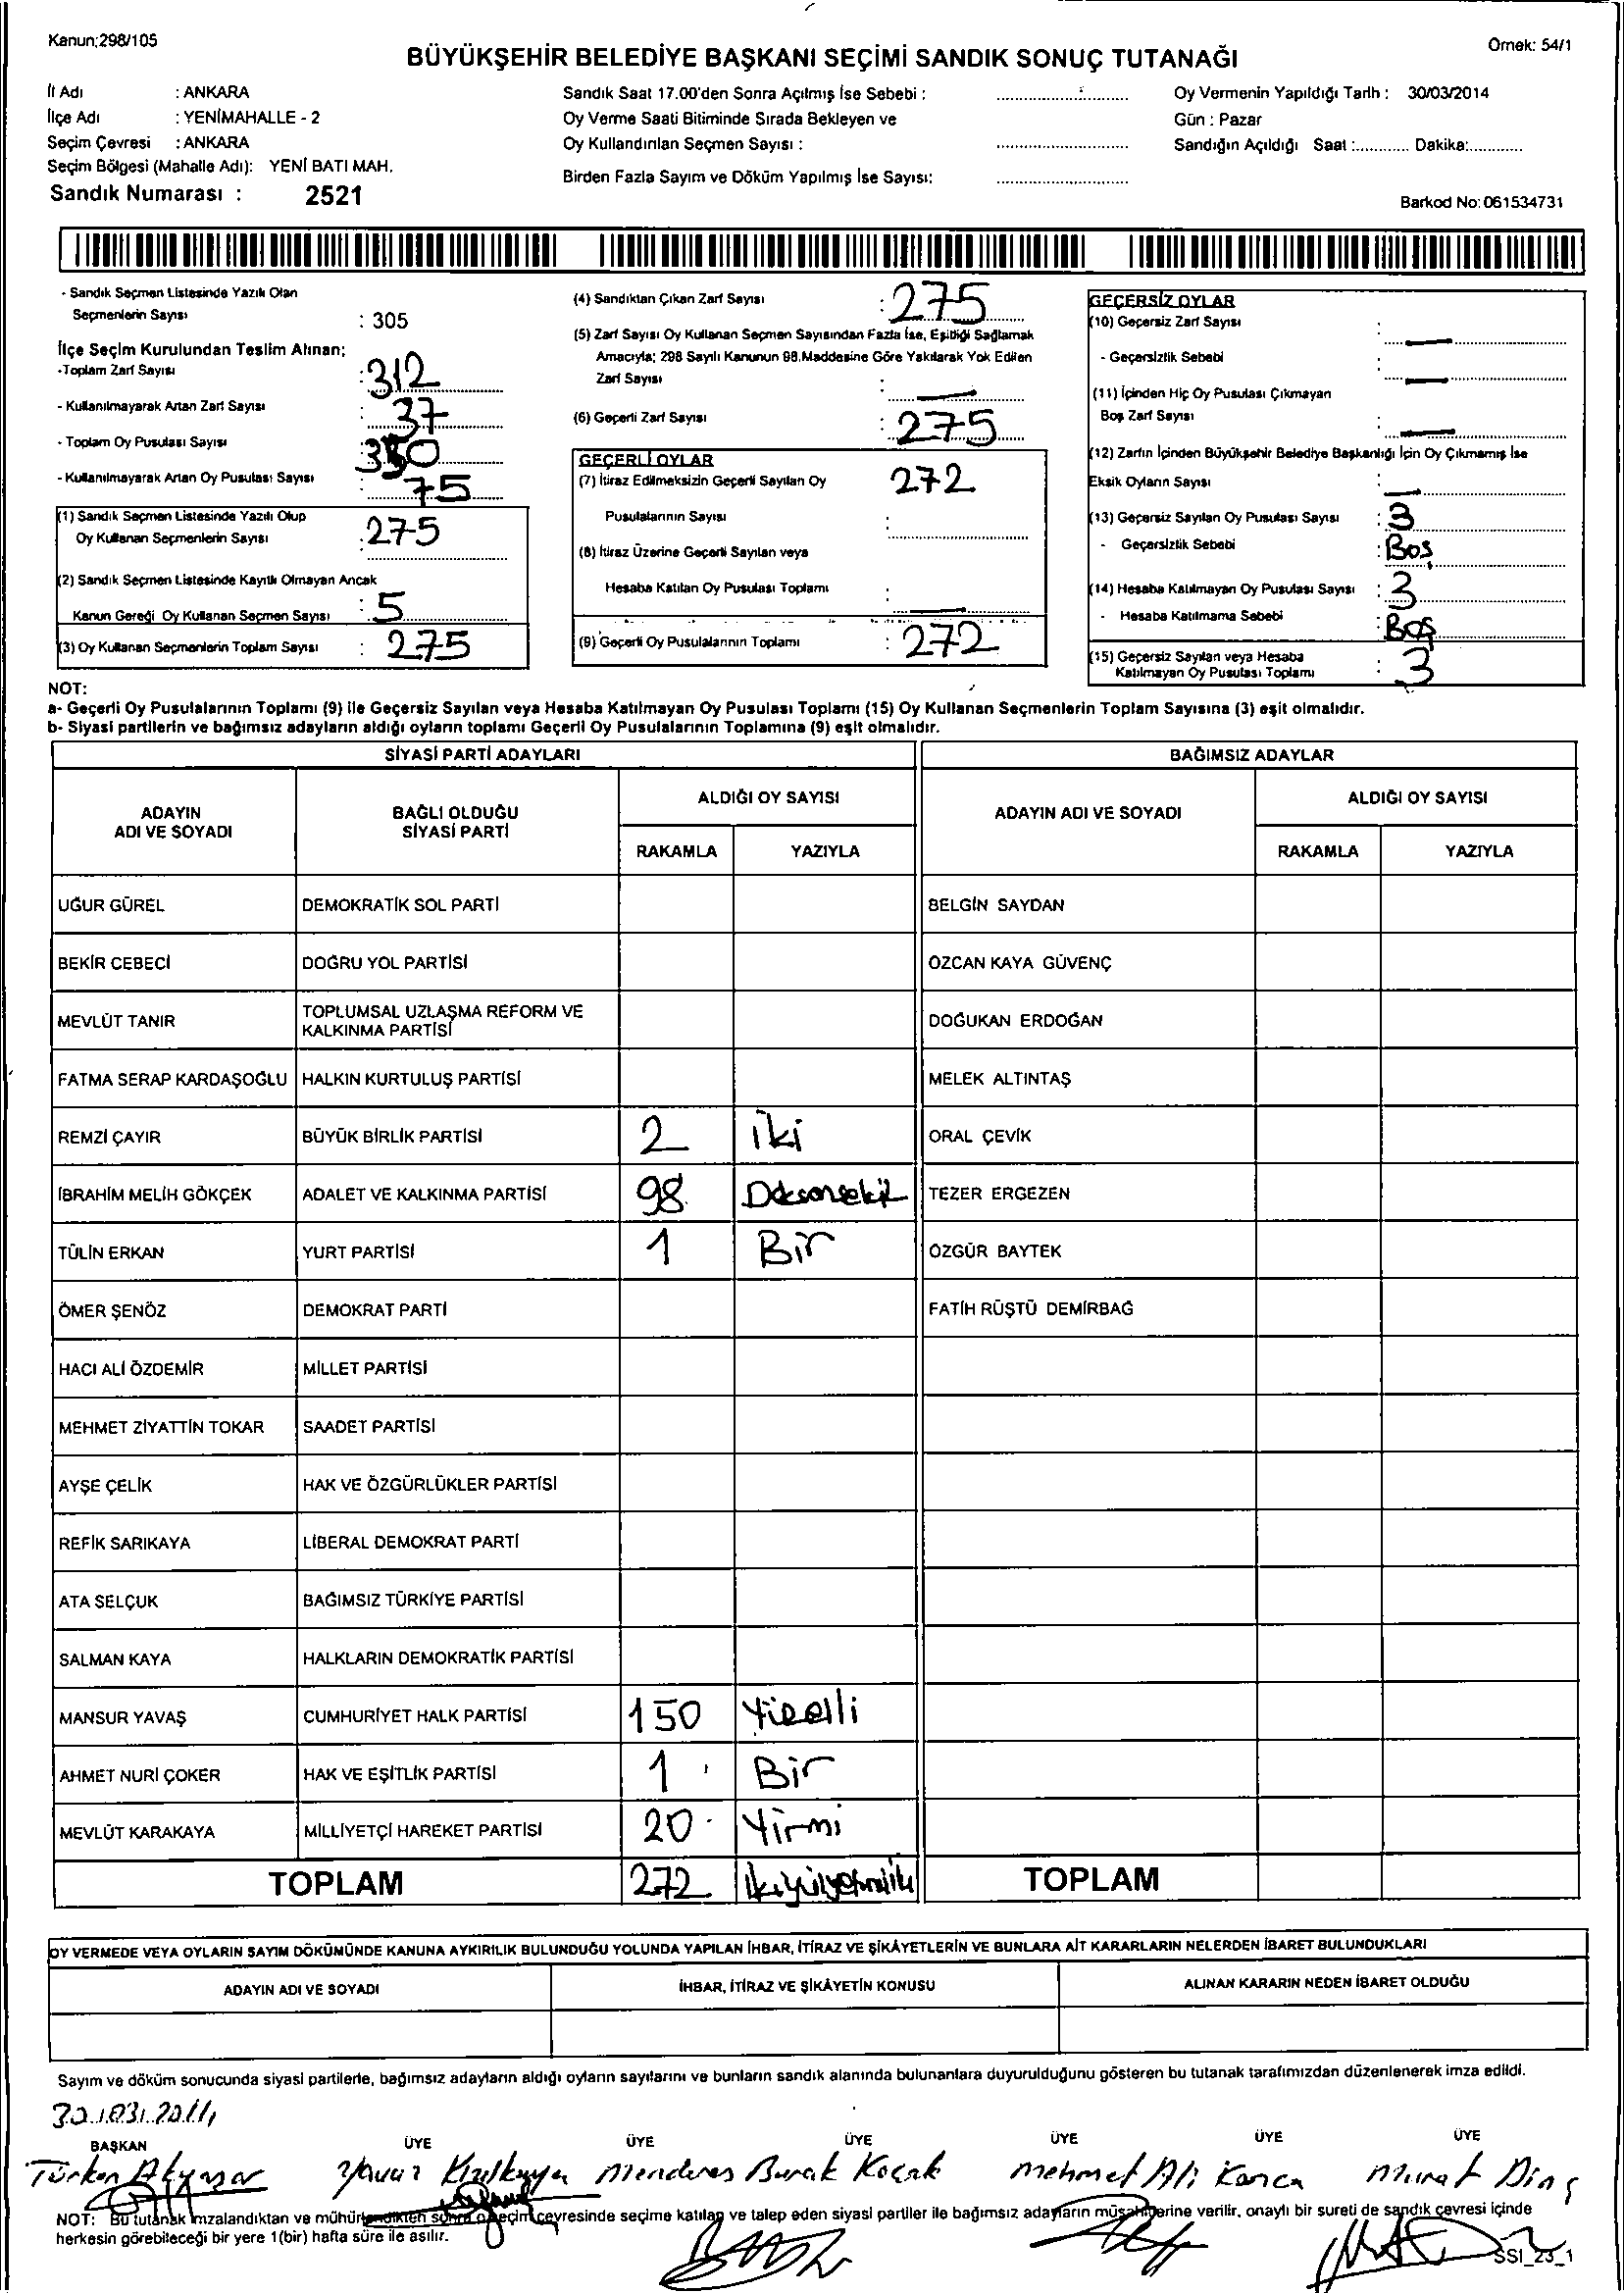 Kanun:298/105
Örnek: 54/1
BÜYÜKŞEHİR BELEDİYE BAŞKANI SEÇİMİ SANDIK SONUÇ TUTANAĞI
İl Adı : ANKARA
İlçe Adı : YENİMAHALLE - 2
Seçim Çevresi : ANKARA
Seçim Bölgesi (Mahalle Adı): YENİ BATI MAH.
Sandık Numarası : 2521
Sandık Saat 17.00'den Sonra Açılmış İse Sebebi :
Oy Verme Saati Bitiminde Sırada Bekleyen ve
Oy Kullandırılan Seçmen Sayısı :
Birden Fazla Sayım ve Döküm Yapılmış İse Sayısı:
Oy Vermenin Yapıldığı Tarih : 30/03/2014
Gün : Pazar
Sandığın Açıldığı Saat :............ Dakika:............
Barkod No: 061534731
- Sandık Seçmen Listesinde Yazılı Olan
Seçmenlerin Sayısı : 305
İlçe Seçim Kurulundan Teslim Alınan;
-Toplam Zarf Sayısı : 312
- Kullanılmayarak Artan Zarf Sayısı : 37
- Toplam Oy Pusulası Sayısı : 350
- Kullanılmayarak Artan Oy Pusulası Sayısı : 75
(1) Sandık Seçmen Listesinde Yazılı Olup
Oy Kullanan Seçmenlerin Sayısı : 275
(2) Sandık Seçmen Listesinde Kayıtlı Olmayan Ancak
Kanun Gereği Oy Kullanan Seçmen Sayısı : 5
(3) Oy Kullanan Seçmenlerin Toplam Sayısı : 275
(4) Sandıktan Çıkan Zarf Sayısı : 275
(5) Zarf Sayısı Oy Kullanan Seçmen Sayısından Fazla İse, Eşitliği Sağlamak
Amacıyla; 298 Sayılı Kanunun 98.Maddesine Göre Yakılarak Yok Edilen
Zarf Sayısı : —
(6) Geçerli Zarf Sayısı : 275
GEÇERLİ OYLAR
(7) İtiraz Edilmeksizin Geçerli Sayılan Oy 272
Pusulalarının Sayısı :
(8) İtiraz Üzerine Geçerli Sayılan veya
Hesaba Katılan Oy Pusulası Toplamı : —
(9) Geçerli Oy Pusulalarının Toplamı : 272
GEÇERSİZ OYLAR
(10) Geçersiz Zarf Sayısı : —
- Geçersizlik Sebebi : —
(11) İçinden Hiç Oy Pusulası Çıkmayan
Boş Zarf Sayısı : —
(12) Zarfın İçinden Büyükşehir Belediye Başkanlığı İçin Oy Çıkmamış İse
Eksik Oyların Sayısı : —
(13) Geçersiz Sayılan Oy Pusulası Sayısı : 3
- Geçersizlik Sebebi : Boş
(14) Hesaba Katılmayan Oy Pusulası Sayısı : 3
- Hesaba Katılmama Sebebi : Boş
(15) Geçersiz Sayılan veya Hesaba
Katılmayan Oy Pusulası Toplamı : 3
NOT:
a- Geçerli Oy Pusulalarının Toplamı (9) ile Geçersiz Sayılan veya Hesaba Katılmayan Oy Pusulası Toplamı (15) Oy Kullanan Seçmenlerin Toplam Sayısına (3) eşit olmalıdır.
b- Siyasi partilerin ve bağımsız adayların aldığı oyların toplamı Geçerli Oy Pusulalarının Toplamına (9) eşit olmalıdır.
SİYASİ PARTİ ADAYLARI BAĞIMSIZ ADAYLAR
ADAYIN ADI VE SOYADI BAĞLI OLDUĞU SİYASİ PARTİ ALDIĞI OY SAYISI ADAYIN ADI VE SOYADI ALDIĞI OY SAYISI
RAKAMLA YAZIYLA RAKAMLA YAZIYLA
UĞUR GÜREL DEMOKRATİK SOL PARTİ BELGİN SAYDAN
BEKİR CEBECİ DOĞRU YOL PARTİSİ ÖZCAN KAYA GÜVENÇ
MEVLÜT TANIR TOPLUMSAL UZLAŞMA REFORM VE KALKINMA PARTİSİ DOĞUKAN ERDOĞAN
FATMA SERAP KARDAŞOĞLU HALKIN KURTULUŞ PARTİSİ MELEK ALTINTAŞ
REMZİ ÇAYIR BÜYÜK BİRLİK PARTİSİ 2 iki ORAL ÇEVİK
İBRAHİM MELİH GÖKÇEK ADALET VE KALKINMA PARTİSİ 98 Doksansekiz TEZER ERGEZEN
TÜLİN ERKAN YURT PARTİSİ 1 Bir ÖZGÜR BAYTEK
ÖMER ŞENÖZ DEMOKRAT PARTİ FATİH RÜŞTÜ DEMİRBAĞ
HACI ALİ ÖZDEMİR MİLLET PARTİSİ
MEHMET ZİYATTİN TOKAR SAADET PARTİSİ
AYŞE ÇELİK HAK VE ÖZGÜRLÜKLER PARTİSİ
REFİK SARIKAYA LİBERAL DEMOKRAT PARTİ
ATA SELÇUK BAĞIMSIZ TÜRKİYE PARTİSİ
SALMAN KAYA HALKLARIN DEMOKRATİK PARTİSİ
MANSUR YAVAŞ CUMHURİYET HALK PARTİSİ 150 Yüzelli
AHMET NURİ ÇOKER HAK VE EŞİTLİK PARTİSİ 1 Bir
MEVLÜT KARAKAYA MİLLİYETÇİ HAREKET PARTİSİ 20 Yirmi
TOPLAM 272 ikiyüzyetmişiki TOPLAM
OY VERMEDE VEYA OYLARIN SAYIM DÖKÜMÜNDE KANUNA AYKIRILIK BULUNDUĞU YOLUNDA YAPILAN İHBAR, İTİRAZ VE ŞİKÂYETLERİN VE BUNLARA AİT KARARLARIN NELERDEN İBARET BULUNDUKLARI
ADAYIN ADI VE SOYADI İHBAR, İTİRAZ VE ŞİKÂYETİN KONUSU ALINAN KARARIN NEDEN İBARET OLDUĞU
Sayım ve döküm sonucunda siyasi partilerle, bağımsız adayların aldığı oyların sayılarını ve bunların sandık alanında bulunanlara duyurulduğunu gösteren bu tutanak tarafımızdan düzenlenerek imza edildi.
30.03.2014
BAŞKAN ÜYE ÜYE ÜYE ÜYE ÜYE ÜYE
Türkan Akyaşar Yavuz Kızılkaya Menderes Burak Koçak Mehmet Ali Karıca Murat Dinç
NOT: Bu tutanak imzalandıktan ve mühürlendikten sonra o seçim çevresinde seçime katılan ve talep eden siyasi partiler ile bağımsız adayların müşahitlerine verilir, onaylı bir sureti de sandık çevresi içinde
herkesin görebileceği bir yere 1(bir) hafta süre ile asılır.
SSI_23_1